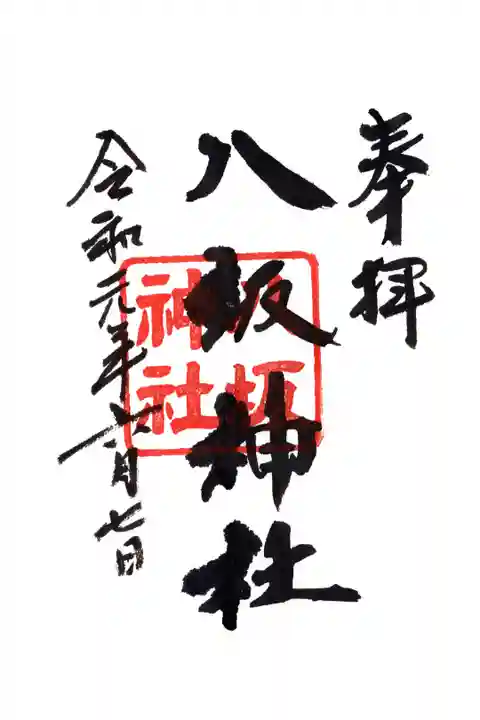 奉拝
八坂神社
八坂
神社
令和元年六月七日